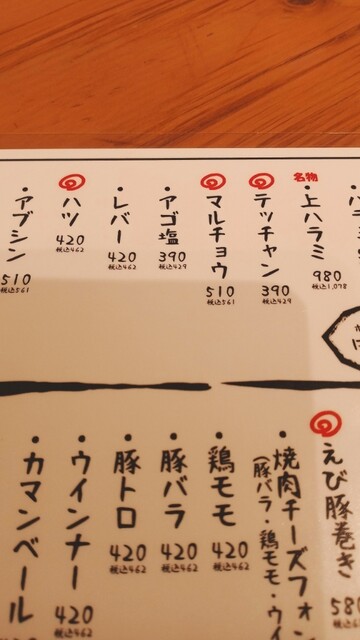 名物
・上ハラミ
980
税込1,078
テッチャン
390
税込429
マルチョウ
510
税込561
・アゴ塩
390
税込429
・レバー
420
税込462
ハツ
420
税込462
・アブシン
510
税込561
えび豚巻き
580
・焼肉チーズフォン
(豚バラ・鶏モモ・ウイ
・鶏モモ
420
税込462
・豚バラ
420
税込462
・豚トロ
420
税込462
・ウインナー
420
税込462
・カマンベール